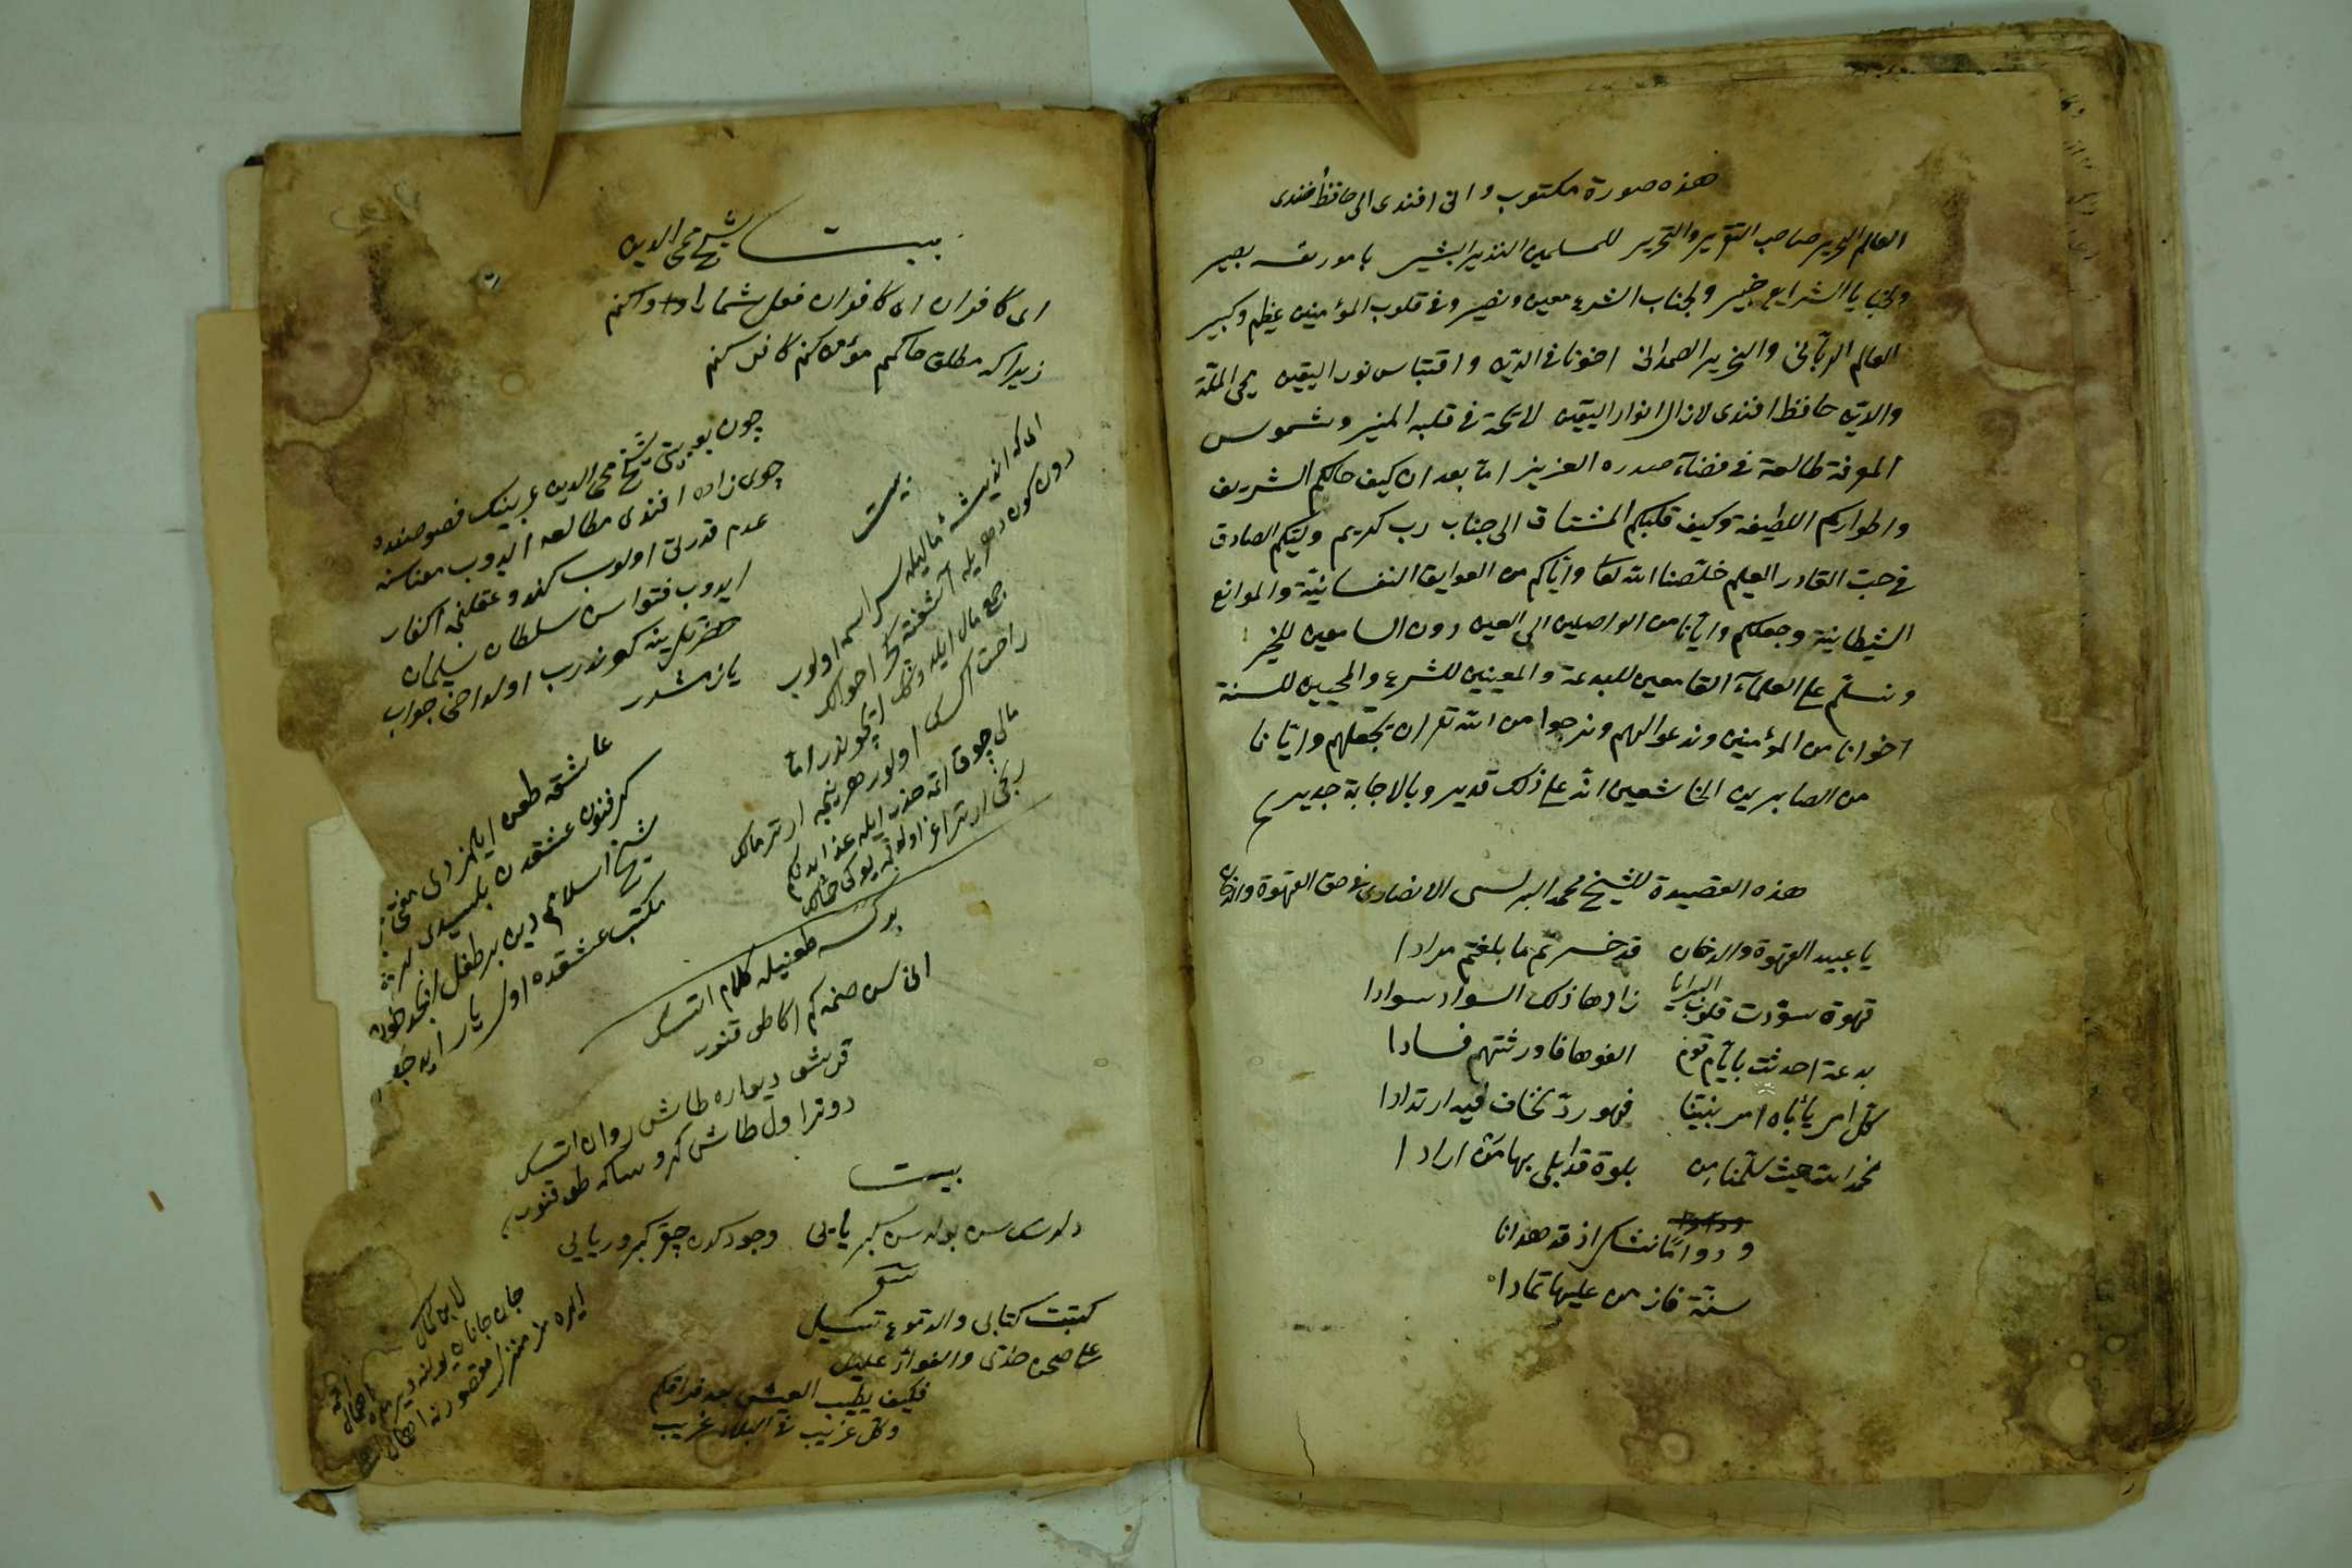 هذه صورة مكتوب وانى افندى الى حافظ افندى
العالم النحرير صاحب التقرير والتحرير للمسلمين النذير البشير بامور بصير
الشرايع خبير ولجناب الشرع معين ونصير وفى قلوب المؤمنين عظيم وكبير
العالم الربانى والنحرير الصمدانى اخونا فى الدين واقتباس نور اليقين محى الملة
والدين حافظ افندى لازال انوار اليقين لائحة فى قلبه المنير وشموس
المعرفة طالعة فى فضاء صدره العزيز اما بعد ان كيف حالكم الشريف
واطواركم اللطيفة وكيف قلبكم المشتاق الى جناب رب كريم الصادق
فى حب القادر العليم خلصنا الله تعا واياكم من العوايق النفسانية والموانع
الشيطانية وجعلكم وايانا من الواصلين الى العين دون السامعين للخبر
ونسلم على العلماء القامعين للبدعة والمعينين للشرع والمحيين للسنة
اخوانا من المؤمنين وندعوا لهم ونرجوا من الله تع ان يجعلهم وايانا
من الصابرين الخاشعين انه على ذلك قدير وبالاجابة جدير
هذه القصيدة للشيخ محمد البرلسى الانصارى فى حق القهوة والدخان
يا عبيد القهوة والدخان قد خسرتم ما بلغتم مرادا
قهوة سودت قلوب البرايا زادها ذلك السواد سوادا
بدعة احدثت بايام قوم الفوها فاورثتهم فسادا
كل امر يأباه امر نبينا فهو رد نخاف فيه ارتدادا
نحمد الله حيث سلمنا من بلوة قد ابلى بها من ارادا
ودواما نشكر اذ قد هدانا
سنة فاز من عليها تمادا
بيت شيخ محى الدين
اى كافران اى كافران قفل شما را وا كنم
زيرا كه مطلق حاكم مؤمن كنم كافر كنم
چون بو بيتى شيخ محى الدين عربينك فصوصنده
چوى زاده افندى مطالعه ايدوب معناسنه
عدم قدرتى اولوب كندو عقلنجه اكفار
ايدوب فتواسن سلطان سليمان
حضرتلرينه كوندرب اولداخى جواب
يازمشدر
عاشقه طعن ايلمز دى مفتى
كر فنون عشقدن بلسيدى بر
شيخ اسلام دين بر طفل ابجد خوان
مكتب عشقده اول يار ايله
بيت
اى كه انديشۀ مال ايله سراسيمه اولوب
دون كون دهر ايله آشفته كچر احوالك
جمع مال ايله وشك ايچوندر اما
راحت اكسك اولور هر نيجه ارتر مالك
مالى چوق اتمه حذر ايله عذابدن كم
بركسه طعنيله كلام اتسك
انى سن صنمه كم اكا طوقنور
قرشو ديواره طاش روان اتسك
دونر اول طاش كرو سكا طوقنور
بيت
وجود كدن چقر كبر وريايى
شعر
كتبت كتابى والدموع تسيل
على صحن خدى والفواد عليل
فكيف يطيب العيش بعد فراقكم
وكل غريب فى البلاد غريب
لابن كمال